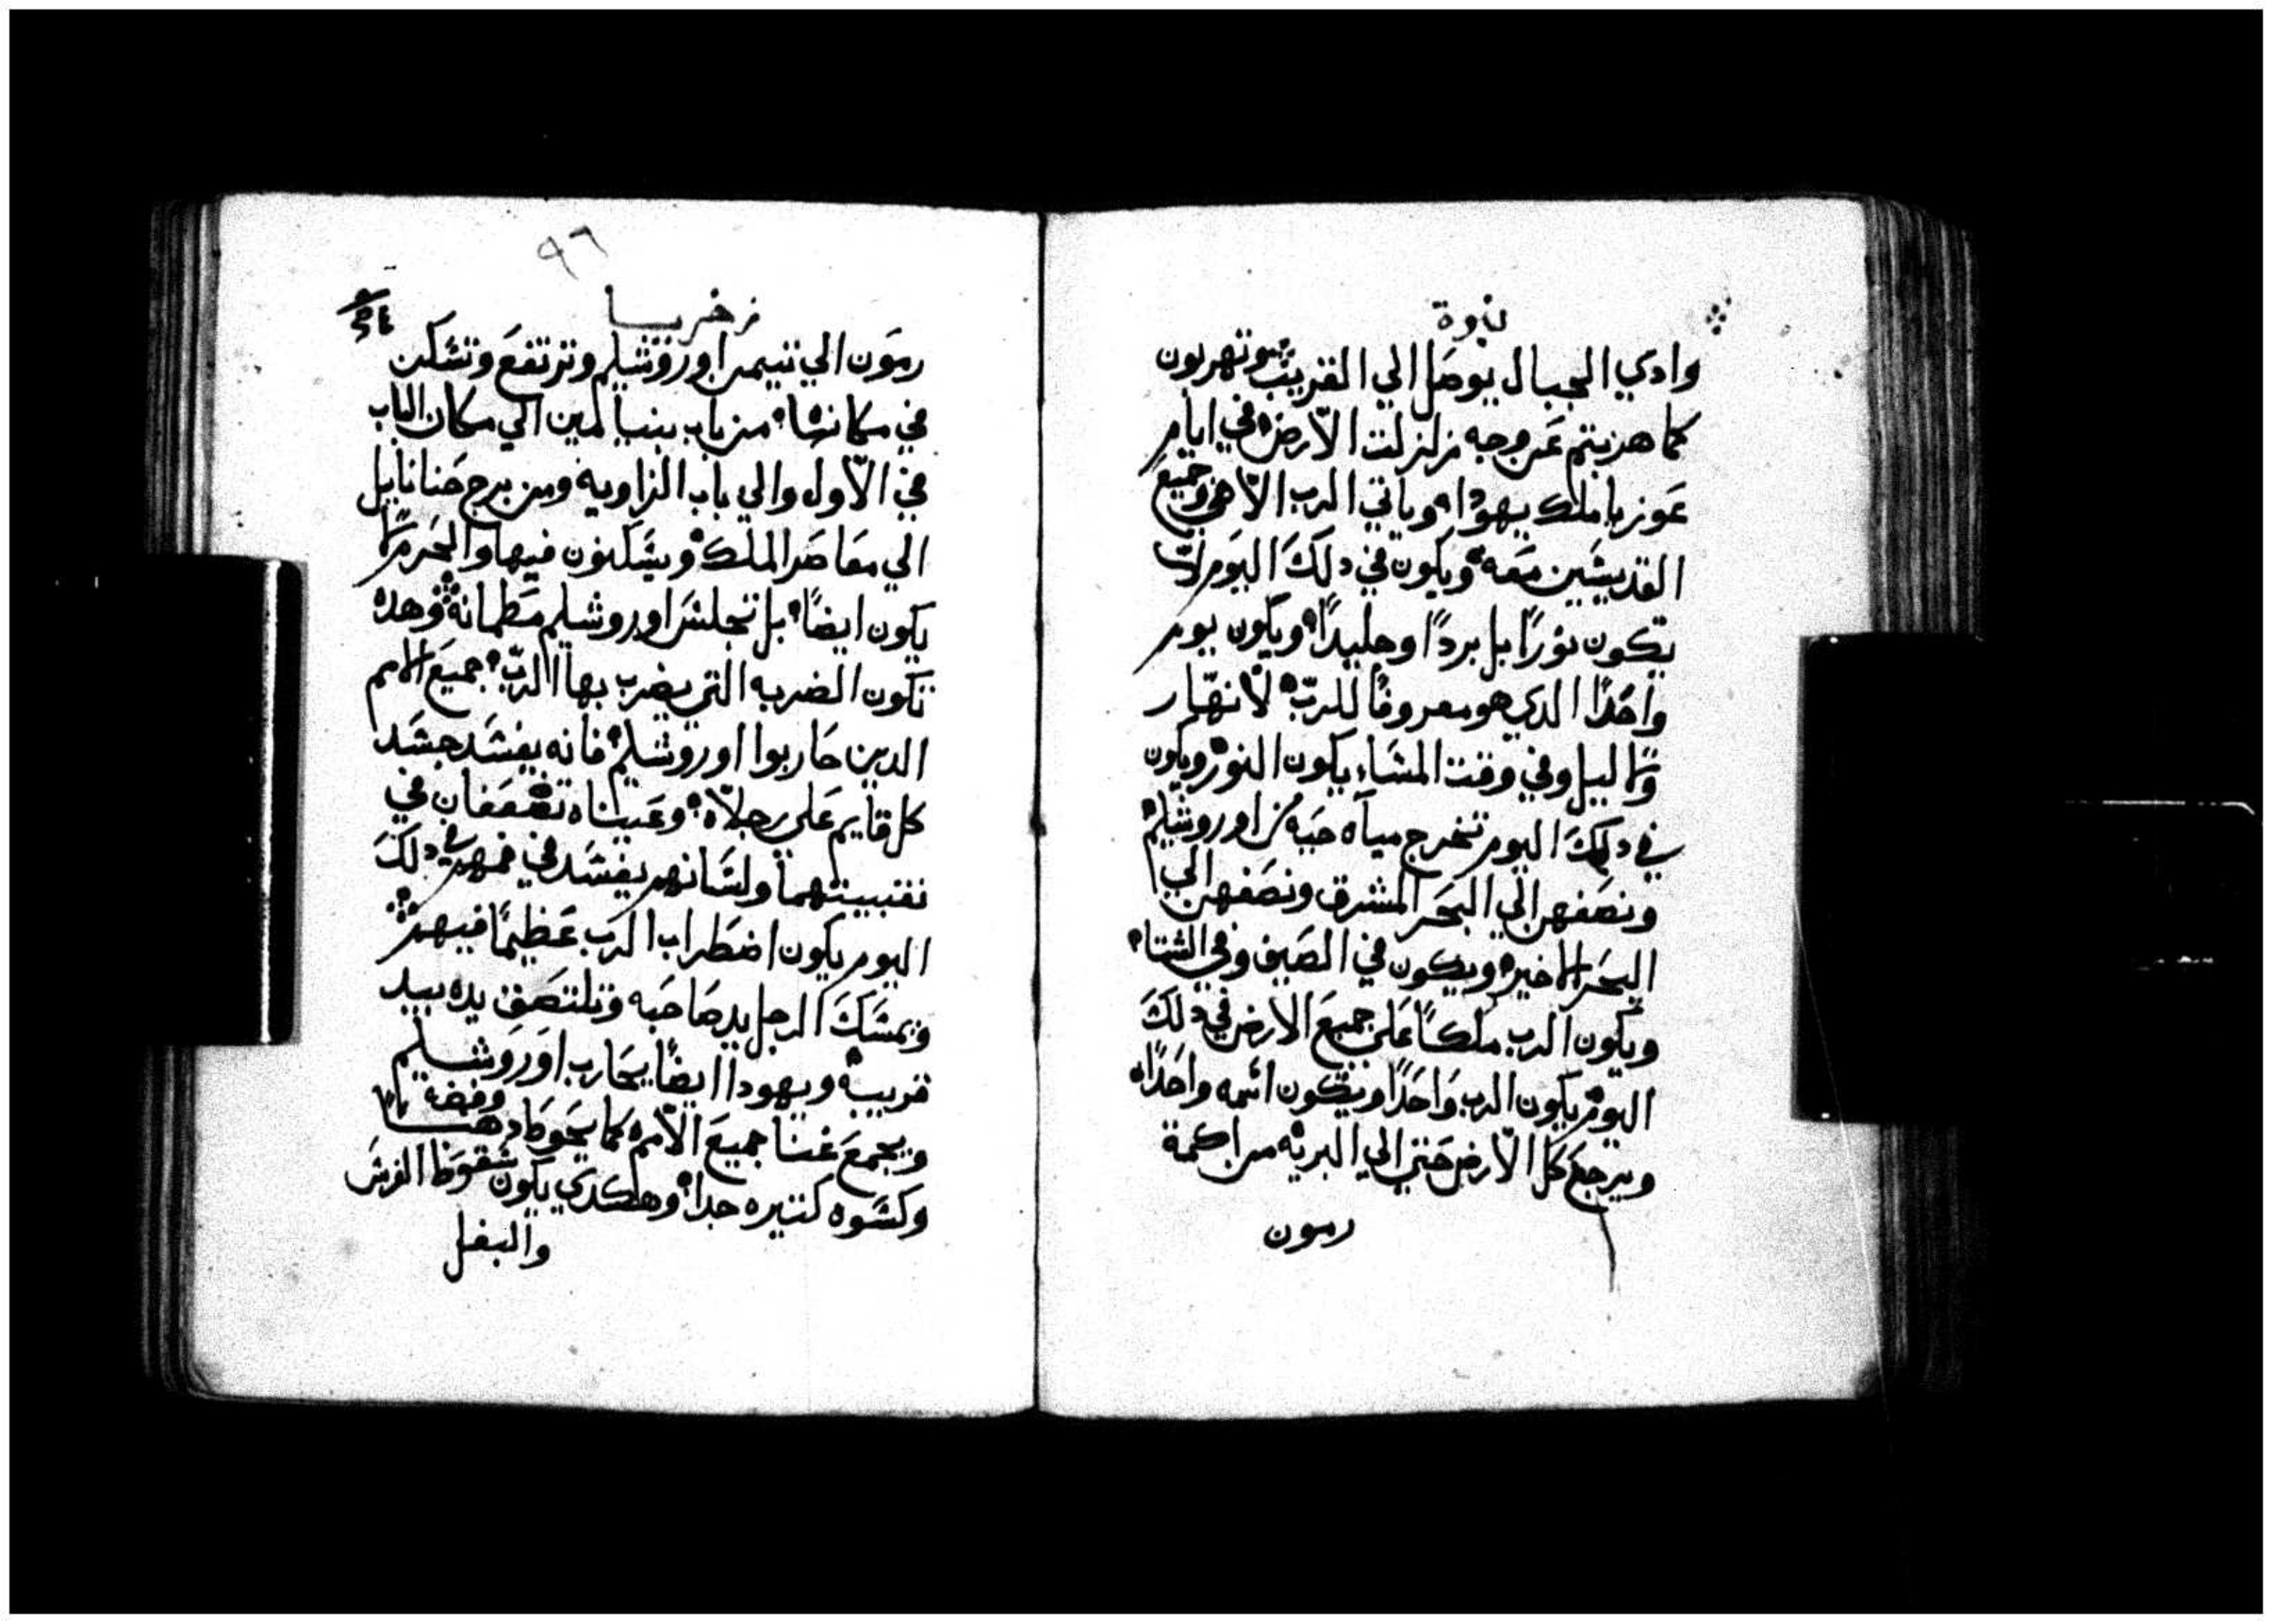 نبوة
وادي الجبال يوصل الي القريب وتهربون
كما هزبتم عن وجه زلزلت الارض في ايام
عوزيا ملك يهودا وياتي الرب الاهي وجميع
القديشين معه ويكون في دلك اليوم لا
يكون نورًا بل بردًا وجليدًا ويكون يوم
واحدًا الدي هو معروفًا للرب لا نهار
ولا ليل وفي وقت المشاء يكون النور ويكون
في دلك اليوم تخرج مياه حيه من اوروشليم
ونصفهن الي البحر المشرق ونصفهن الي
البحر الاخير ويكون في الصيف وفي الشتاء
ويكون الرب ملكًا علي جميع الارض في دلك
اليوم يكون الرب واحدًا ويكون اسمه واحدًا
ويرجع كل الارض حتي الي البريه من اكمة
رمون
٩٦
زخريا
رمون الي تيمن اوروشليم وترتفع وتسكن
في مكانها من باب بنيامين الي مكان الباب
في الاول والي باب الزاويه ومن برج حنانايل
الي معاصر الملك ويسكنون فيها والحرم لا
يكون ايضًا بل تجلس اوروشليم مطمانه وهده
تكون الضربه التي يضرب بها الرب جميع الامم
الدين حاربوا اوروشليم فانه يفسد جسد
كل قايم علي رجلاه وعيناه تضعفان في
نقبيتهما ولسانهم يفسد في فمهم في دلك
اليوم يكون اضطراب الرب عظيمًا فيهم
ويمسك الرجل يد صاحبه وتلتصق يده بيد
قريبه ويهودا ايضًا يحارب اوروشليم
ويجمع غنا جميع الامم كما يحوط دهبا وفضه
وكسوه كتيره جدا وهكدي يكون سقوط الفرس
والبغل